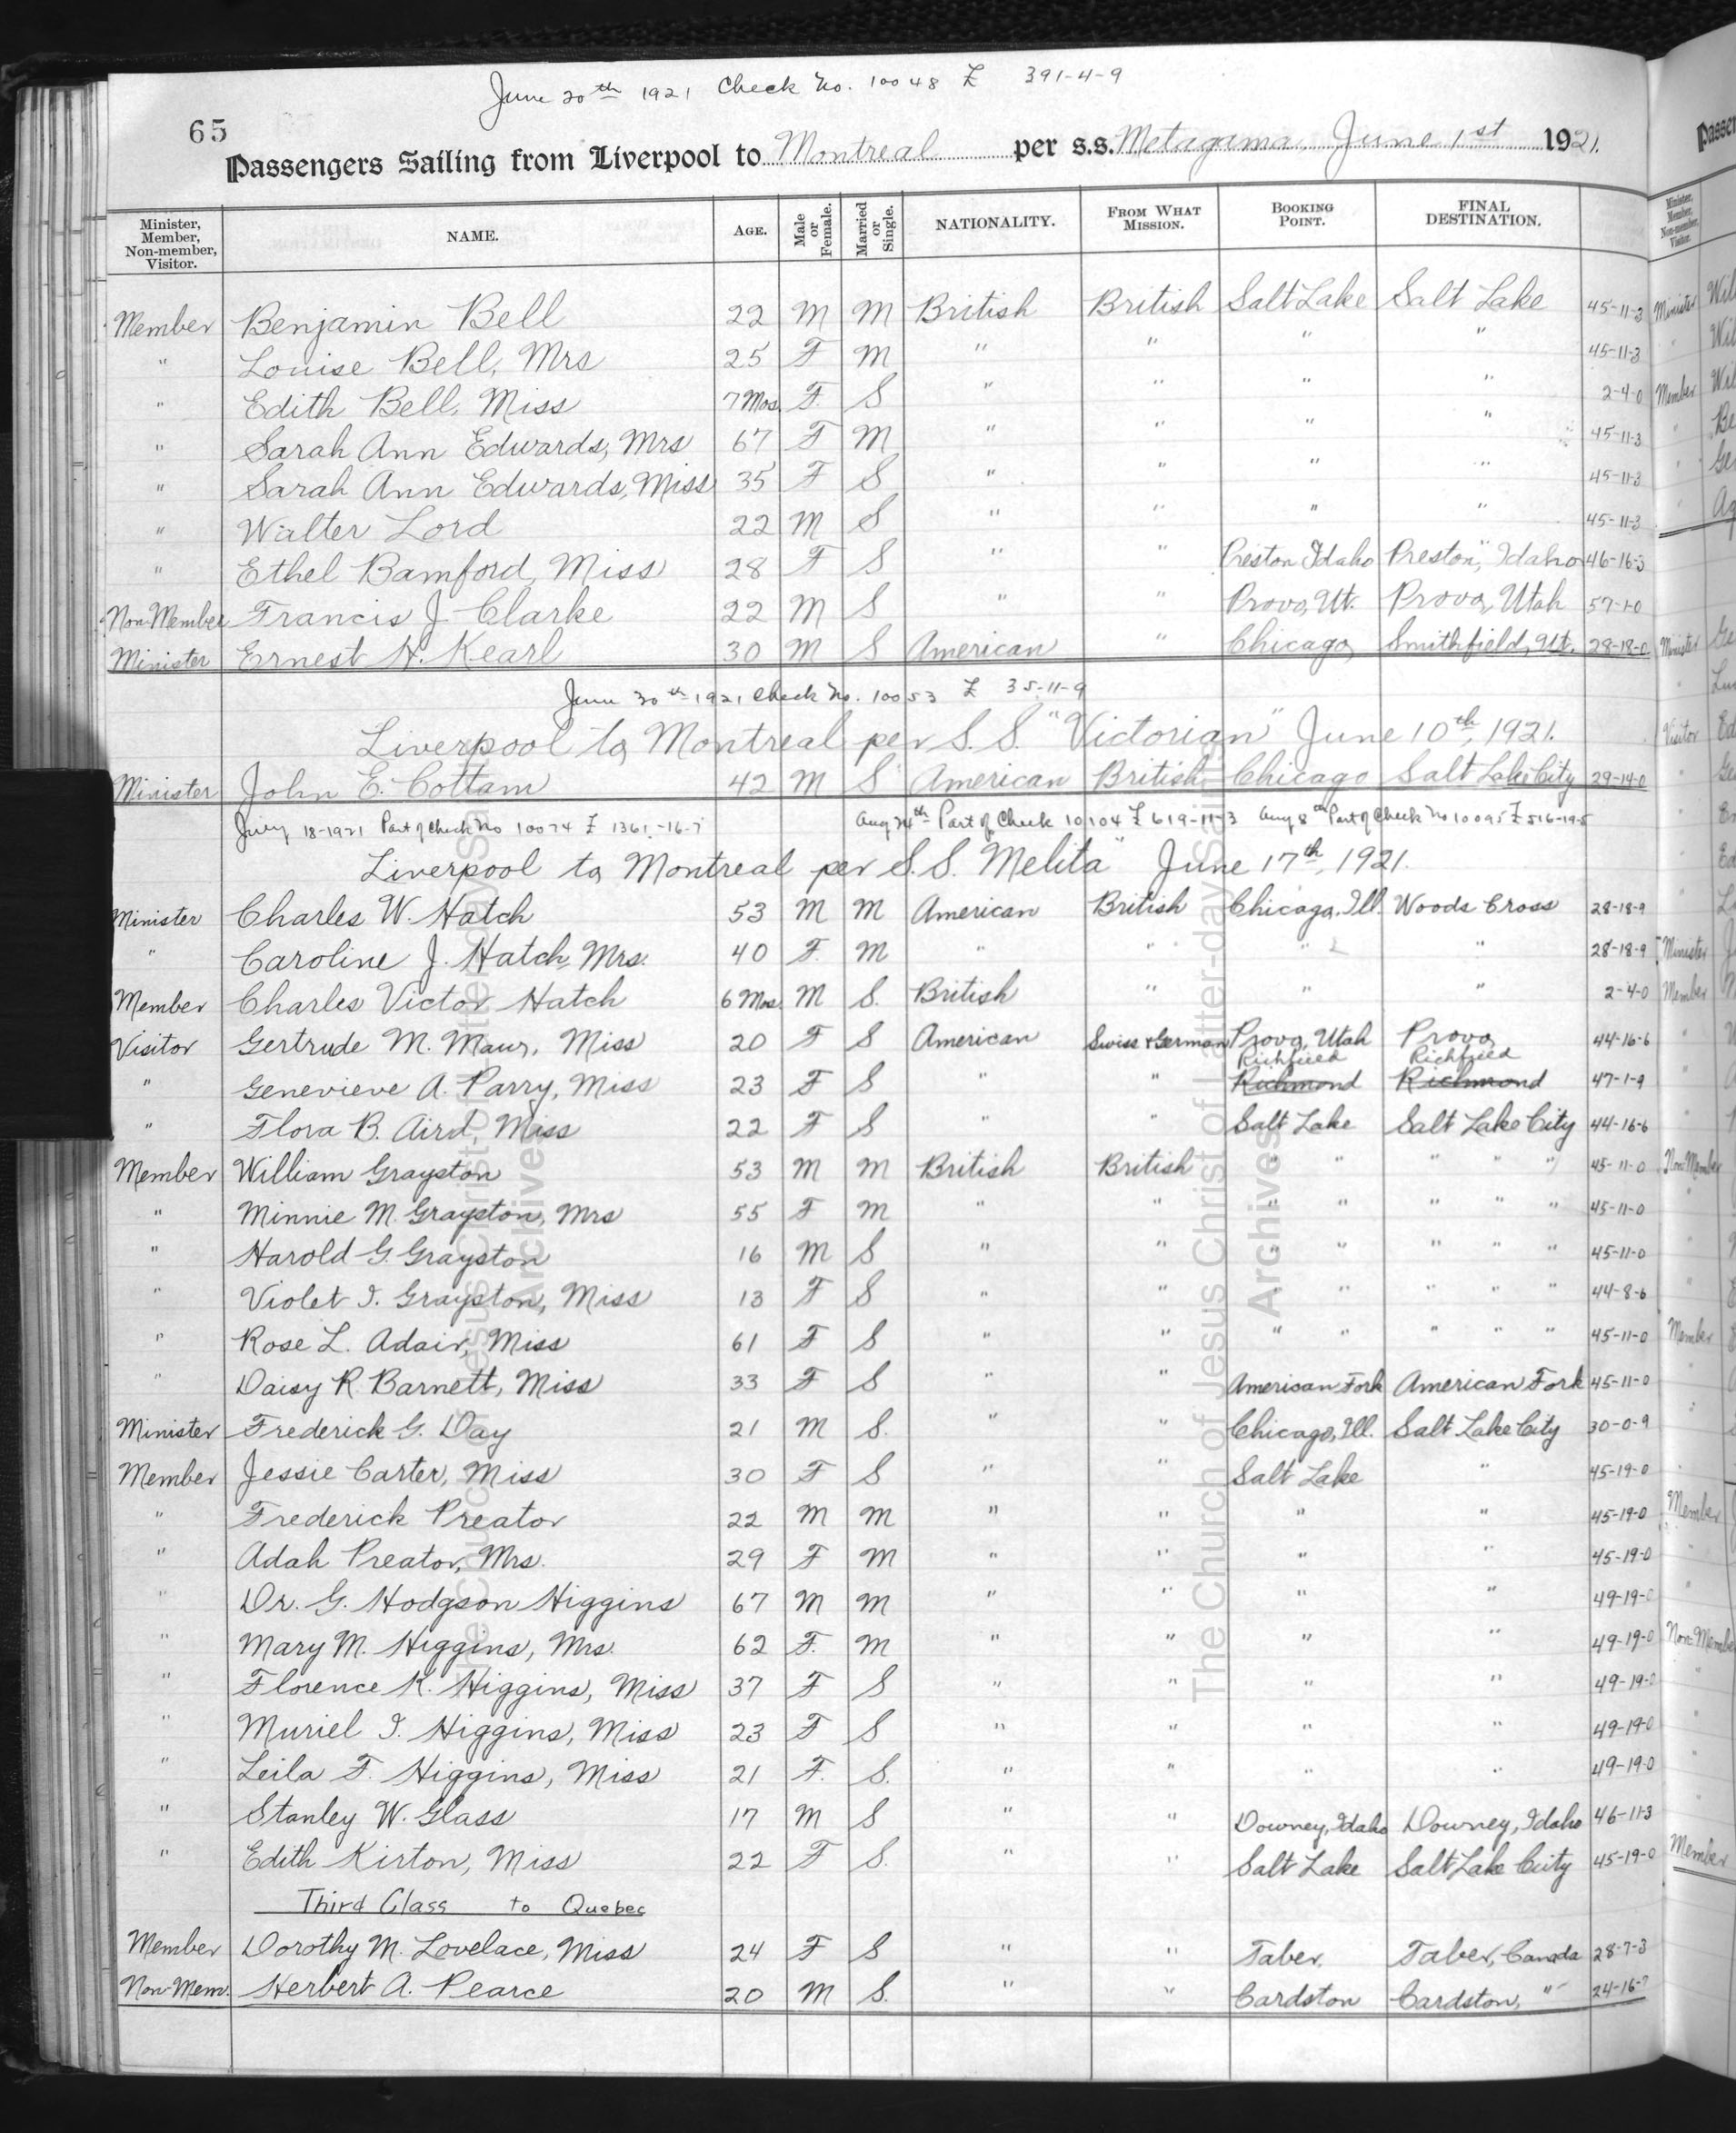 June 20th 1921 Check No. 10048 £ 391-4-9
65
Passengers Sailing from Liverpool to Montreal per s.s. Metagama June 1st 1921.
Minister, Member, Non-member, Visitor. NAME. AGE. Male or Female. Married or Single. NATIONALITY. FROM WHAT MISSION. BOOKING POINT. FINAL DESTINATION.
Member Benjamin Bell 22 M M British British Salt Lake Salt Lake 45-11-3
" Louise Bell, Mrs 25 F M " " " " 45-11-3
" Edith Bell, Miss 7 Mos. F. S " " " " 2-4-0
" Sarah Ann Edwards, Mrs 67 F M " " " " 45-11-3
" Sarah Ann Edwards, Miss 35 F S " " " " 45-11-3
" Walter Lord 22 M S " " " " 45-11-3
" Ethel Bamford, Miss 28 F S " " Preston Idaho Preston, Idaho 46-16-3
Non-Member Francis J. Clarke 22 M S " " Provo, Ut. Provo, Utah 57-1-0
Minister Ernest H. Kearl 30 M S American " Chicago, Smithfield, Ut. 28-18-0
June 30th 1921 Check No. 10053 £ 35-11-9
Liverpool to Montreal per S.S. "Victorian" June 10th, 1921.
Minister John E. Cottam 42 M S American British Chicago Salt Lake City 29-14-0
July 18-1921 Part of Check No 10074 £ 1361-16-7 Aug 24th Part of Check 10104 £ 619-11-3 Aug 8th Part of Check No 10095 £ 516-19-5
Liverpool to Montreal per S.S. Melita" June 17th, 1921.
Minister Charles W. Hatch 53 M M American British Chicago, Ill. Woods Cross 28-18-9
" Caroline J. Hatch, Mrs. 40 F. M " " " " 28-18-9
Member Charles Victor Hatch 6 Mos. M S. British " " " 2-4-0
Visitor Gertrude M. Maur, Miss 20 F S American Swiss & German Provo, Utah Provo, 44-16-6
Richfield Richfield
" Genevieve A. Parry, Miss 23 F S " " Richmond Richmond 47-1-9
" Flora B. Aird, Miss 22 F S " " Salt Lake Salt Lake City 44-16-6
Member William Grayston 53 M M British British " " " " " 45-11-0
" Minnie M. Grayston, Mrs 55 F M " " " " " " " 45-11-0
" Harold G. Grayston 16 M S " " " " " " " 45-11-0
" Violet I. Grayston, Miss 13 F S " " " " " " " 44-8-6
" Rose L. Adair, Miss 61 F S " " " " " " " 45-11-0
" Daisy R. Barnett, Miss 33 F S " " American Fork American Fork 45-11-0
Minister Frederick G. Day 21 M S. " " Chicago, Ill. Salt Lake City 30-0-9
Member Jessie Carter, Miss 30 F S " " Salt Lake " 45-19-0
" Frederick Preator 22 M M " " " " 45-19-0
" Adah Preator, Mrs. 29 F M " " " " 45-19-0
" Dr. G. Hodgson Higgins 67 M M " " " " 49-19-0
" Mary M. Higgins, Mrs. 62 F. M " " " " 49-19-0
" Florence K. Higgins, Miss 37 F S " " " " 49-19-0
" Muriel I. Higgins, Miss 23 F S " " " " 49-19-0
" Leila F. Higgins, Miss 21 F. S. " " " " 49-19-0
" Stanley W. Glass 17 M S " " Downey, Idaho Downey, Idaho 46-11-3
" Edith Kirton, Miss 22 F S. " " Salt Lake Salt Lake City 45-19-0
Third Class to Quebec
Member Dorothy M. Lovelace, Miss 24 F S " " Taber, Taber, Canada 28-7-3
Non-Mem. Herbert A. Pearce 20 M S. " " Cardston Cardston, " 24-16-7
The Church of Jesus Christ of Latter-day Saints
Archives
The Church of Jesus Christ of Latter-day Saints
Archives